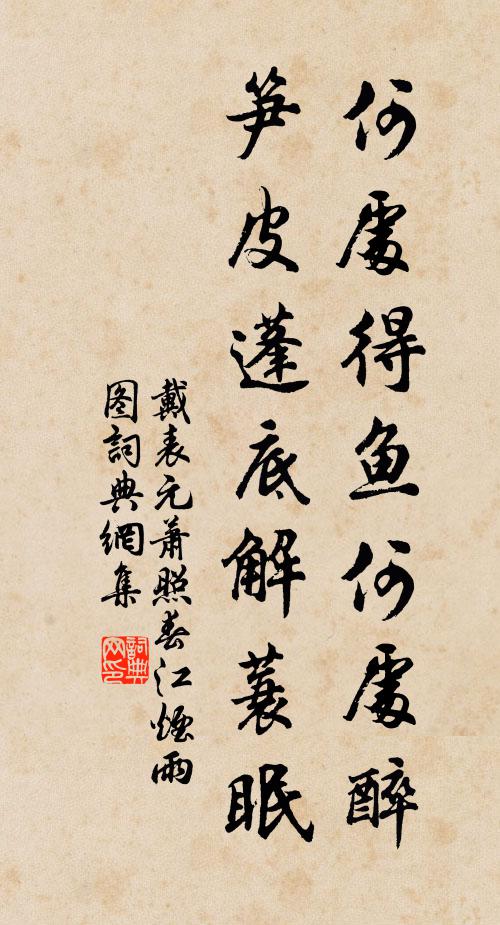 何處得鱼何處醉
笋皮蓬底解蓑眠
戴表元萧照春江烟雨
图詞典網集
詞典网印